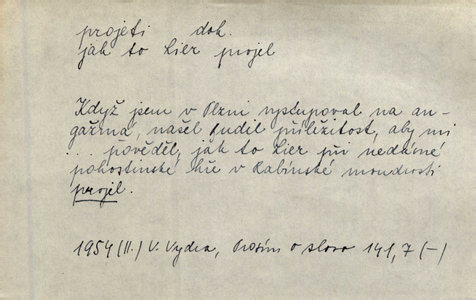 projeti dok.
jak to Lier projel
Když jsem v Plzni vystupoval na an-
gažmá, našel Budil příležitost, aby mi
... pověděl, jak to Lier při nedávné
pohostinské hře v Rabínské moudrosti
projel.
1954 (II.) V. Vydra, Prosím o slovo 141, 7 (-)